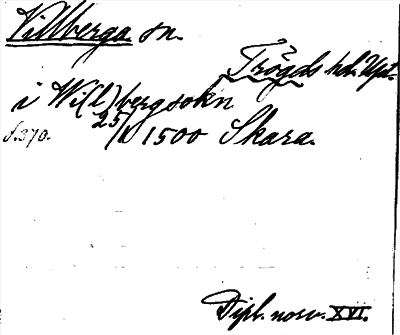 Villberga sn.
Trögds hd. Upl.
i Wi(l)bergsokn
s. 370. 25/1 1500 Skara.
Dipl. norv. XVI.